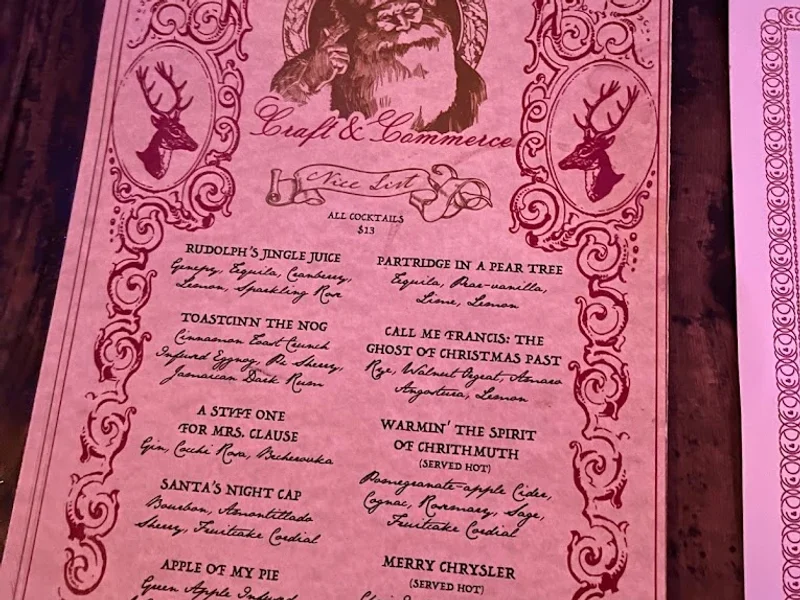 Craft & Commerce
Nice List
ALL COCKTAILS
$13
RUDOLPH'S JINGLE JUICE
Genepy, Tequila, Cranberry,
Lemon, Sparkling Rose
TOASTCINN THE NOG
Cinnamon Toast Crunch
Infused Eggnog, Px Sherry,
Jamaican Dark Rum
A STIFF ONE
FOR MRS. CLAUSE
Gin, Cocchi Rosa, Becherovka
SANTA'S NIGHT CAP
Bourbon, Amontillado
Sherry, Fruitcake Cordial
APPLE OF MY PIE
Green Apple Infused
PARTRIDGE IN A PEAR TREE
Tequila, Pear-vanilla,
Lime, Lemon
CALL ME FRANCIS: THE
GHOST OF CHRISTMAS PAST
Rye, Walnut Orgeat, Amaro
Angostura, Lemon
WARMIN' THE SPIRIT
OF CHRITHMUTH
(SERVED HOT)
Pomegranate-apple Cider,
Cognac, Rosemary, Sage,
Fruitcake Cordial
MERRY CHRYSLER
(SERVED HOT)